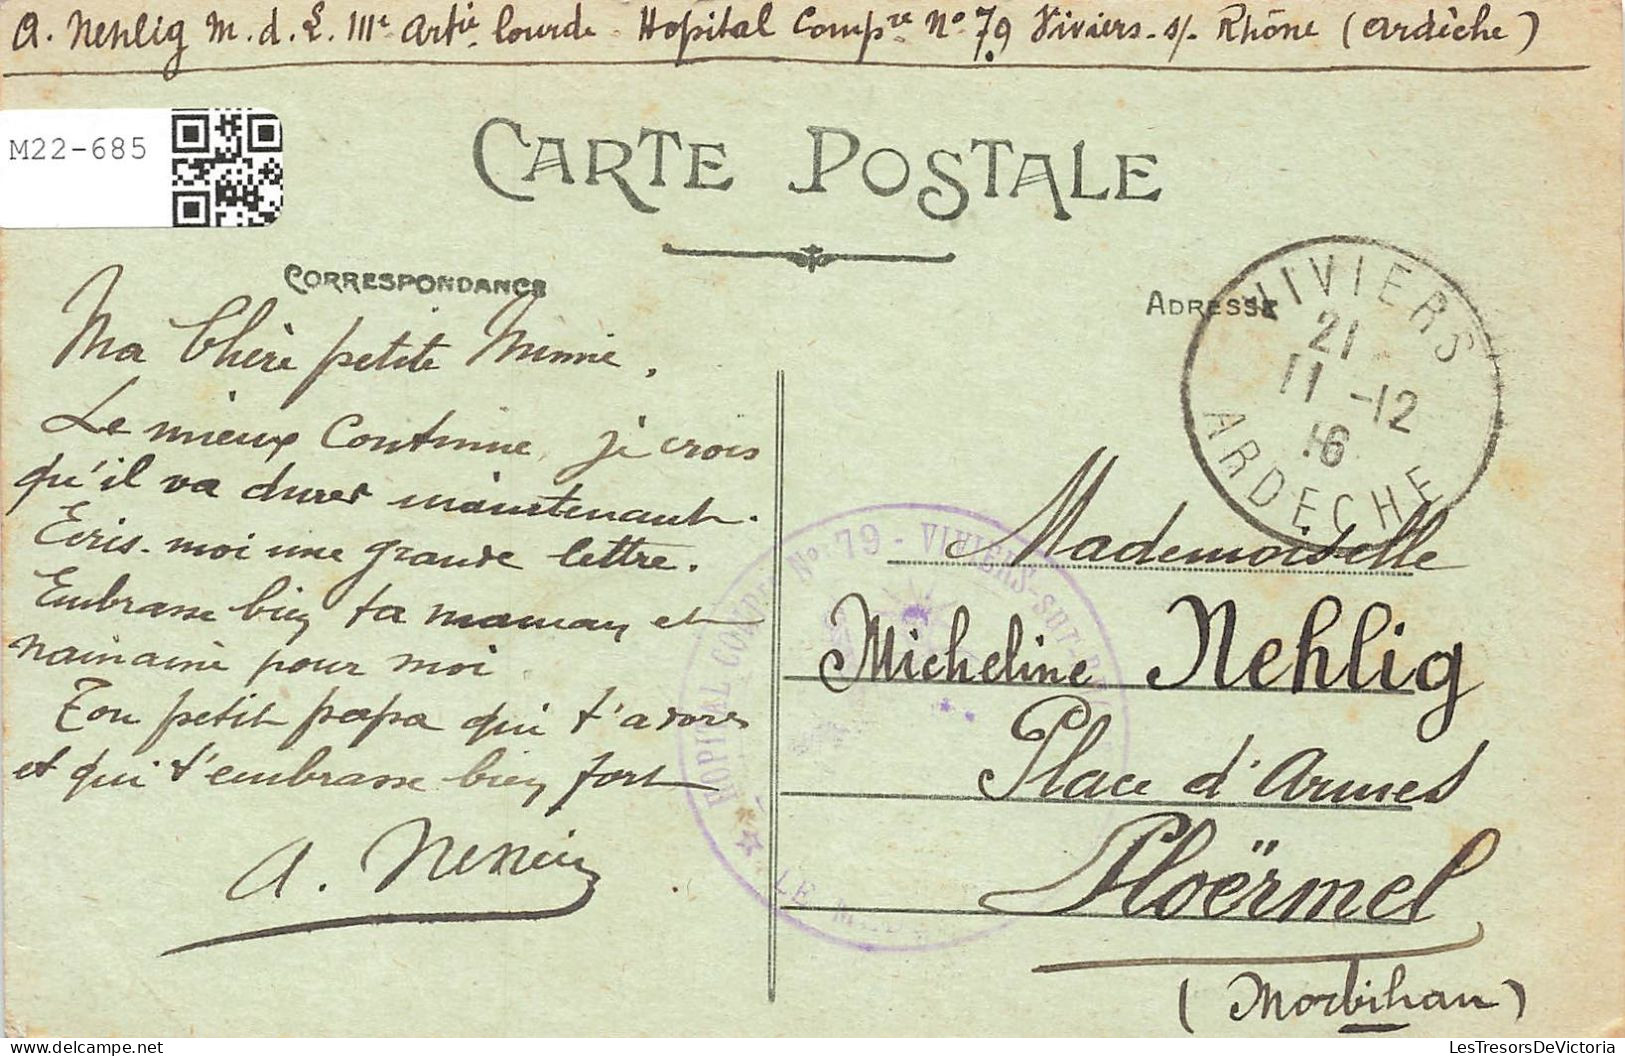 A. Nehlig M.d.L. 111e Artie lourde. Hopital Compre No 79 Viviers-s/- Rhône (Ardèche)
M22-685
CARTE POSTALE
CORRESPONDANCE
ADRESSE
VIVIERS
21
11 -12
16
ARDECHE
Ma Chère petite Mimie,
Le mieux Continue, je crois
qu'il va durer maintenant.
Ecris-moi une grande lettre.
Embrasse bien ta maman et
nainaine pour moi
Ton petit papa qui t'adore
et qui t'embrasse bien fort
A. Nehlig
HOPITAL COMPRE No 79 - VIVIERS-SUR-
LE
Mademoiselle
Micheline Nehlig
Place d'Armes
Ploërmel
(Morbihan)
LesTresorsDeVictoria